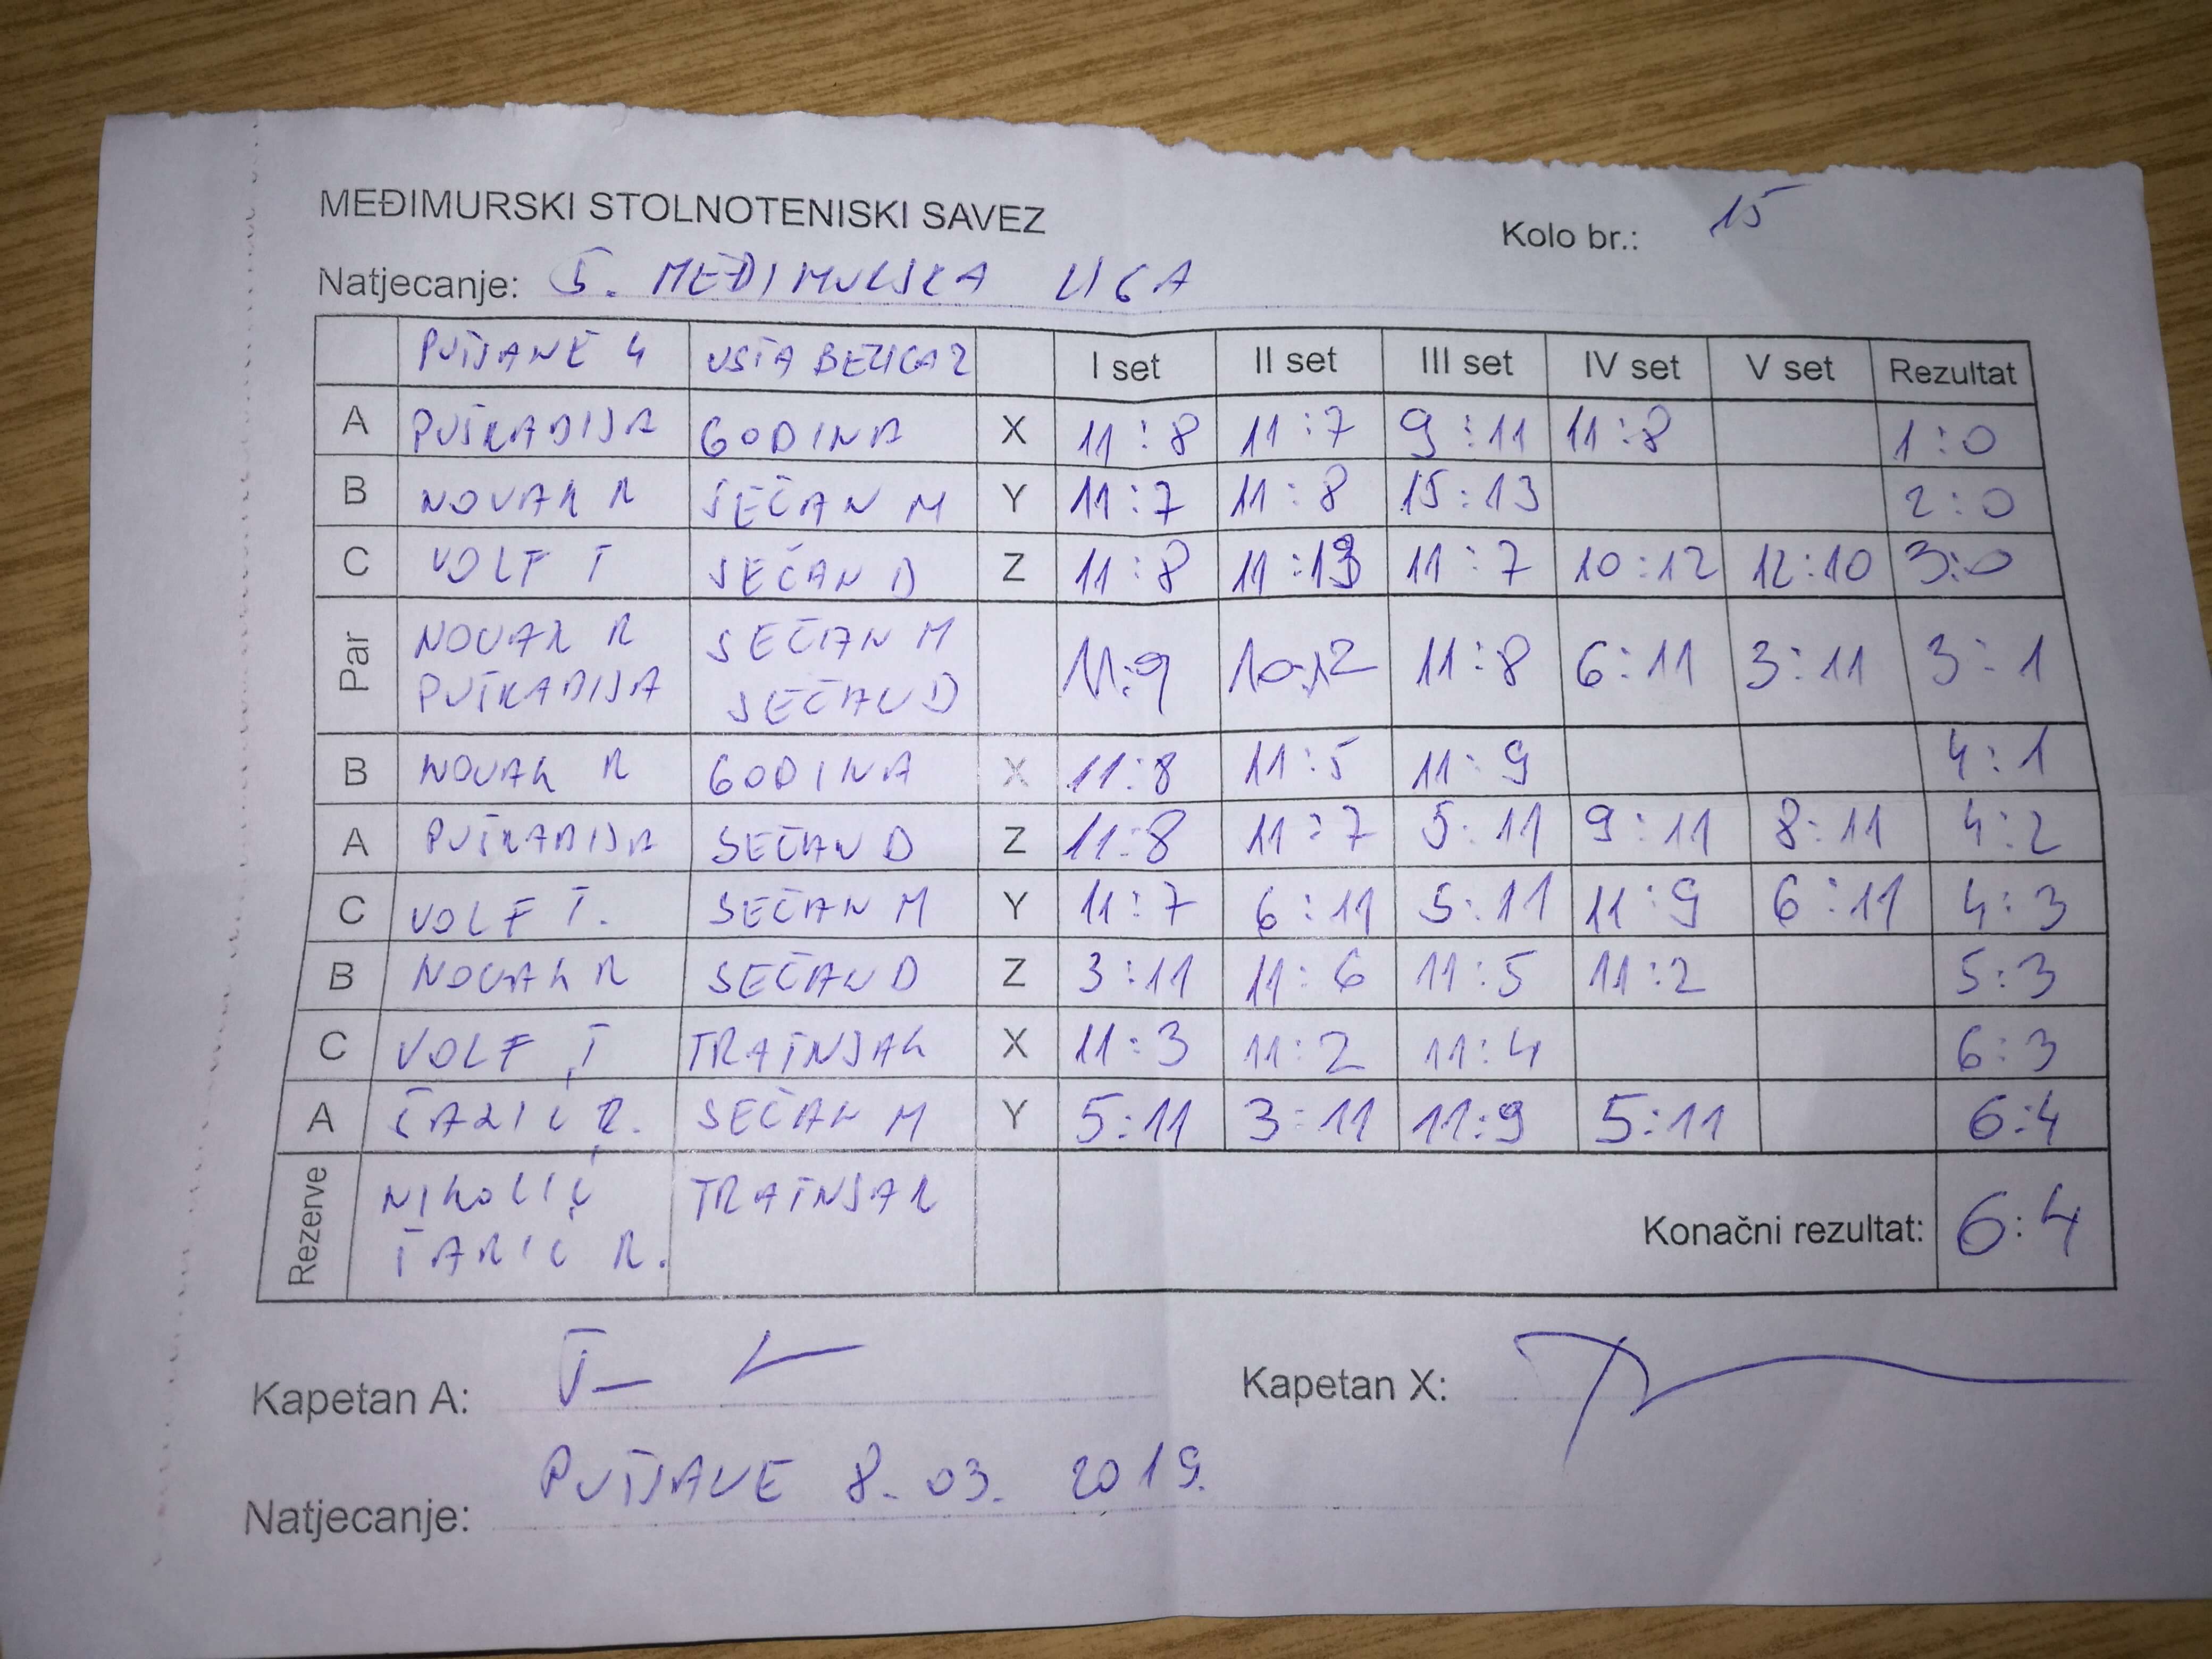 MEĐIMURSKI STOLNOTENISKI SAVEZ
Kolo br.: 15
Natjecanje: 5. MEĐIMURSKA LIGA
I set II set III set IV set V set Rezultat
A PUŠKADIJA GODINA X 11:8 11:7 9:11 11:8 1:0
B NOVAK R SEČAN M Y 11:7 11:8 15:13 2:0
C VOLF T SEČAN D Z 11:8 11:13 11:7 10:12 12:10 3:0
Par NOVAK R SEČAN M 11:9 10:12 11:8 6:11 3:11 3:1
PUŠKADIJA SEČAN D
B NOVAK R GODINA X 11:8 11:5 11:9 4:1
A PUŠKADIJA SEČAN D Z 11:8 11:7 5:11 9:11 8:11 4:2
C VOLF T. SEČAN M Y 11:7 6:11 5:11 11:9 6:11 4:3
B NOVAK R SEČAN D Z 3:11 11:6 11:5 11:2 5:3
C VOLF T TRATNJAK X 11:3 11:2 11:4 6:3
A R. SEČAN M Y 5:11 3:11 11:9 5:11 6:4
Rezerve NIKOLIĆ TRATNJAK Konačni rezultat: 6:4
R.
Kapetan A:
Kapetan X:
Natjecanje: 8.03.2019.